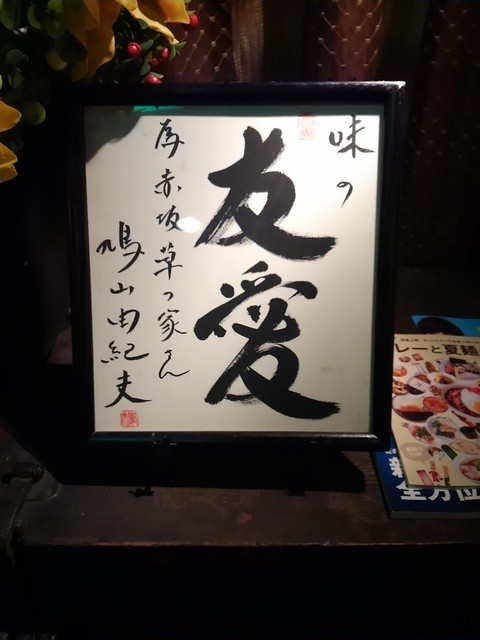 味の
友愛
為 赤坂 草の家さん
鳩山由紀夫
レーと夏麺
全方位